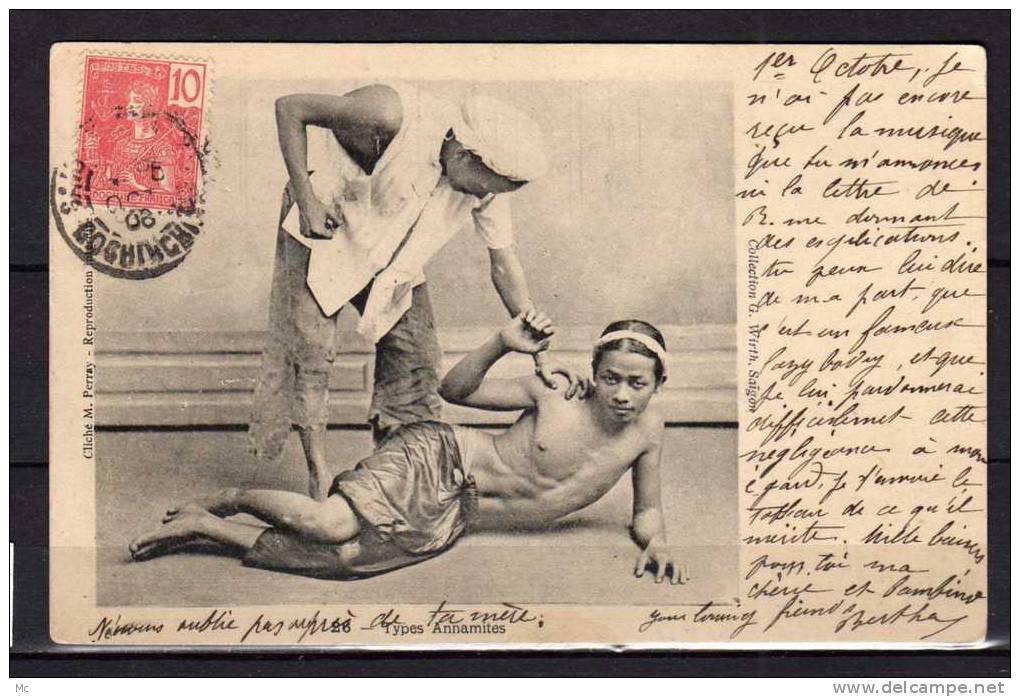 POSTES
10
COCHINCHINE
Cliché M. Perray - Reproduction
Collection G. Wirth, Saïgon
1er Octobre, Je
n'ai pas encore
reçu la musique
que tu m'annonces
ni la lettre de
B. me donnant
des explications.
tu peux lui dire
de ma part, que
c'est un fameux
lazy bodoy, et que
je lui pardonnerai
difficilement cette
négligeance à mon
égard, Je t'envoie le
tableau de ce qu'il
mérite. Mille baisers
pour toi ma
chérie et Bambino
your loving friend
Bertha
Ne nous oublie pas auprès de ta mère.
26 — Types Annamites
Mc
www.delcampe.net